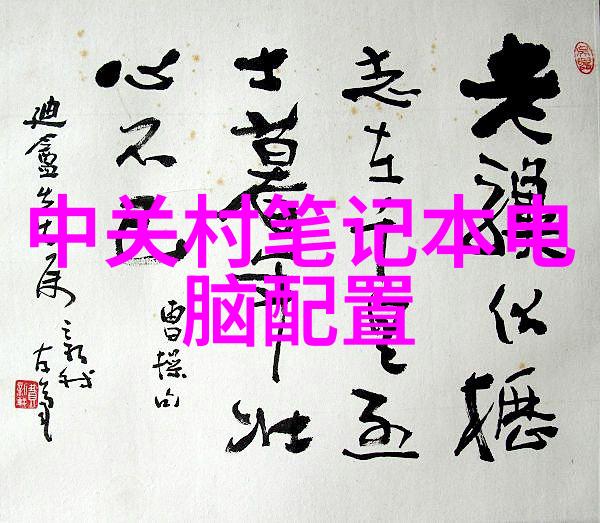 中关村笔记本电
脑配置
老骥伏櫪
志在千里烈
士暮年壮
心不已
曹操句